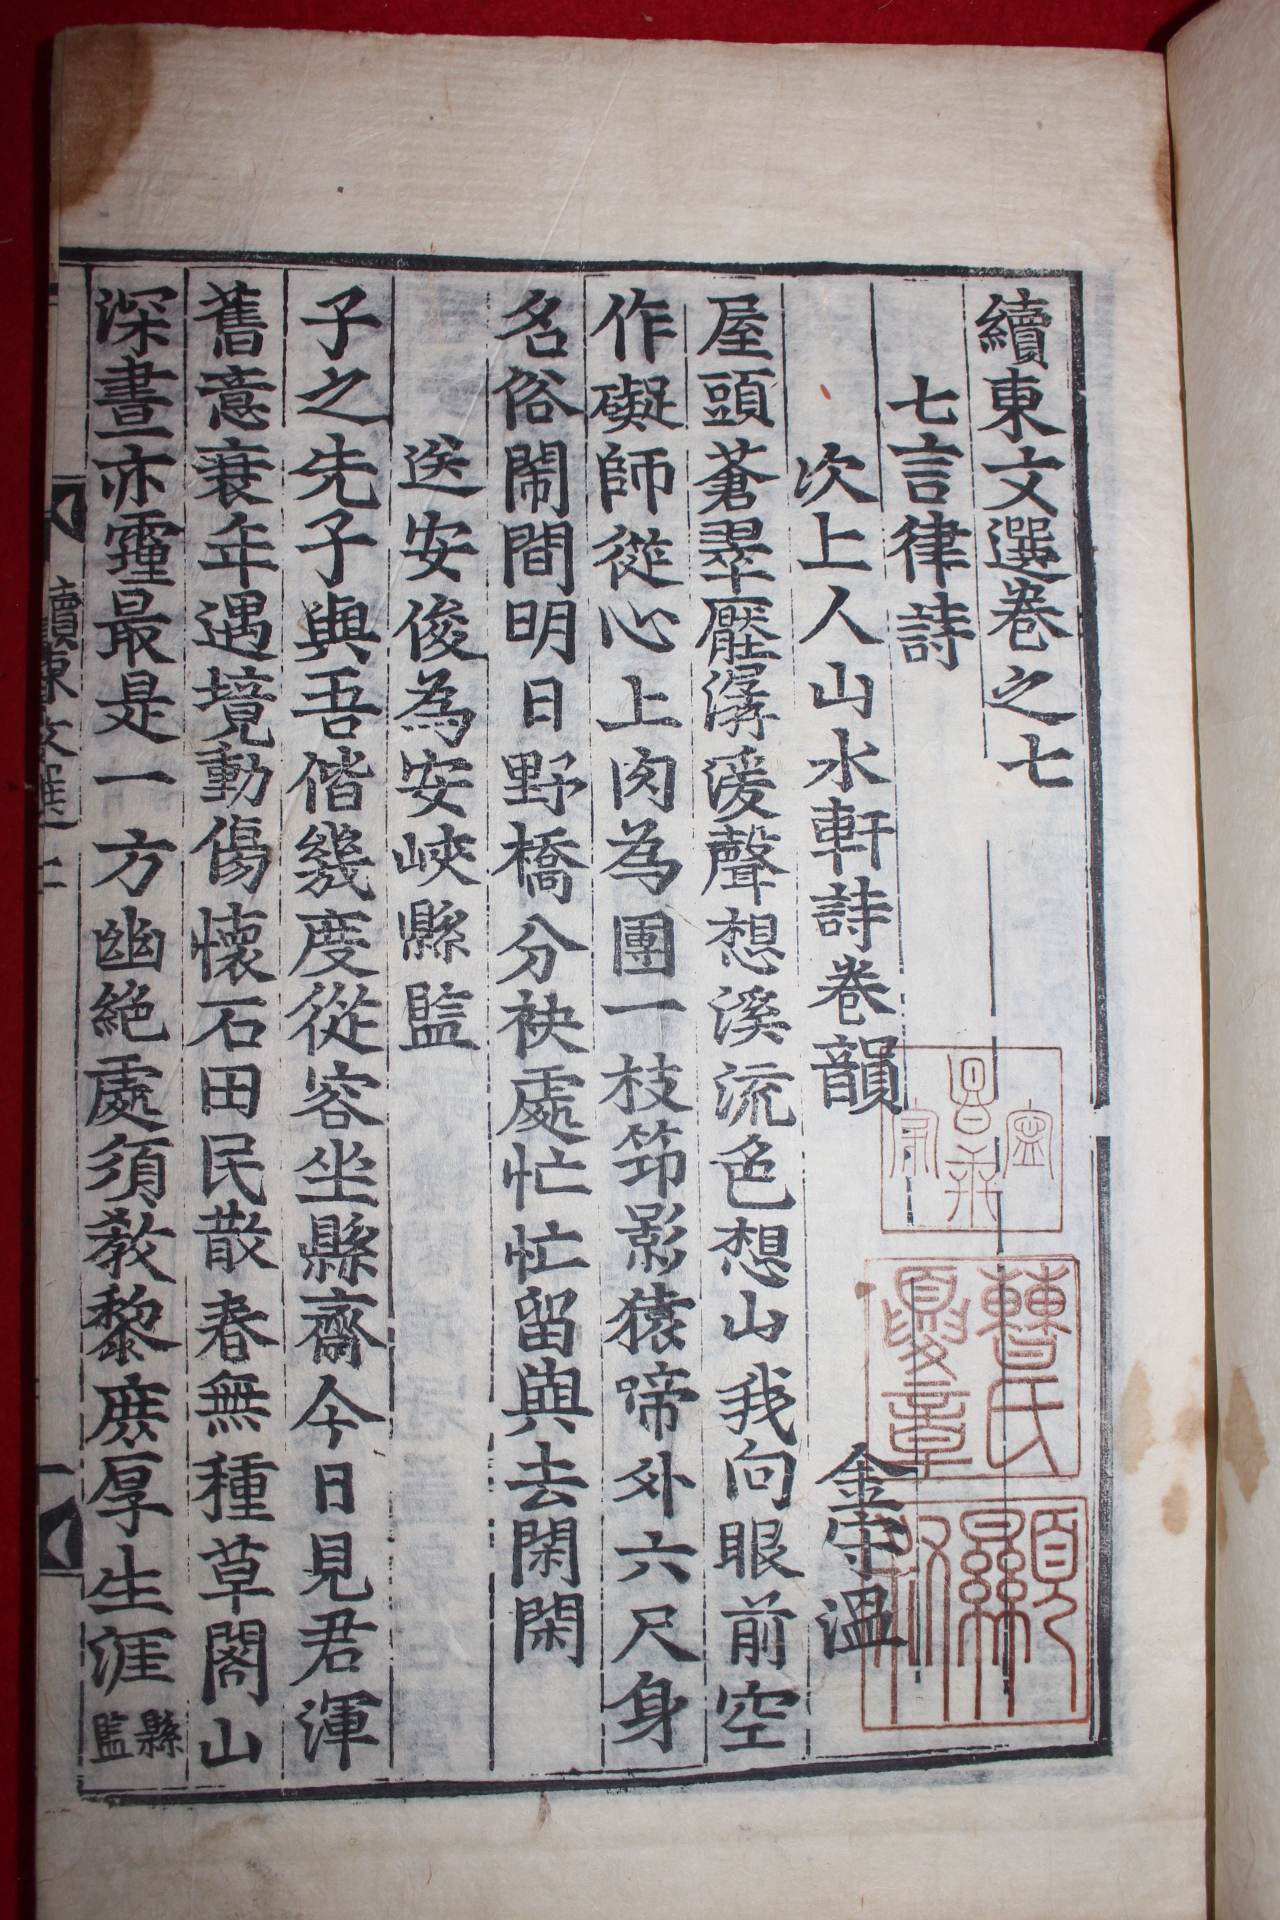 續東文選卷之七
七言律詩
次上人山水軒詩卷韻 金守温
屋頭蒼翠壓潺湲聲想溪流色想山我向眼前空
作礙師從心上肉為團一枝筇影猿啼外六尺身
名俗閙間明日野橋分袂處忙忙留與去閑閑
送安俊為安峽縣監
子之先子與吾偕幾度從容坐縣齋今日見君渾
舊意衰年遇境動傷懷石田民散春無種草閣山
深晝亦霾最是一方幽絶處須敎黎庶厚生涯縣監
續東文選 七
曹氏
章